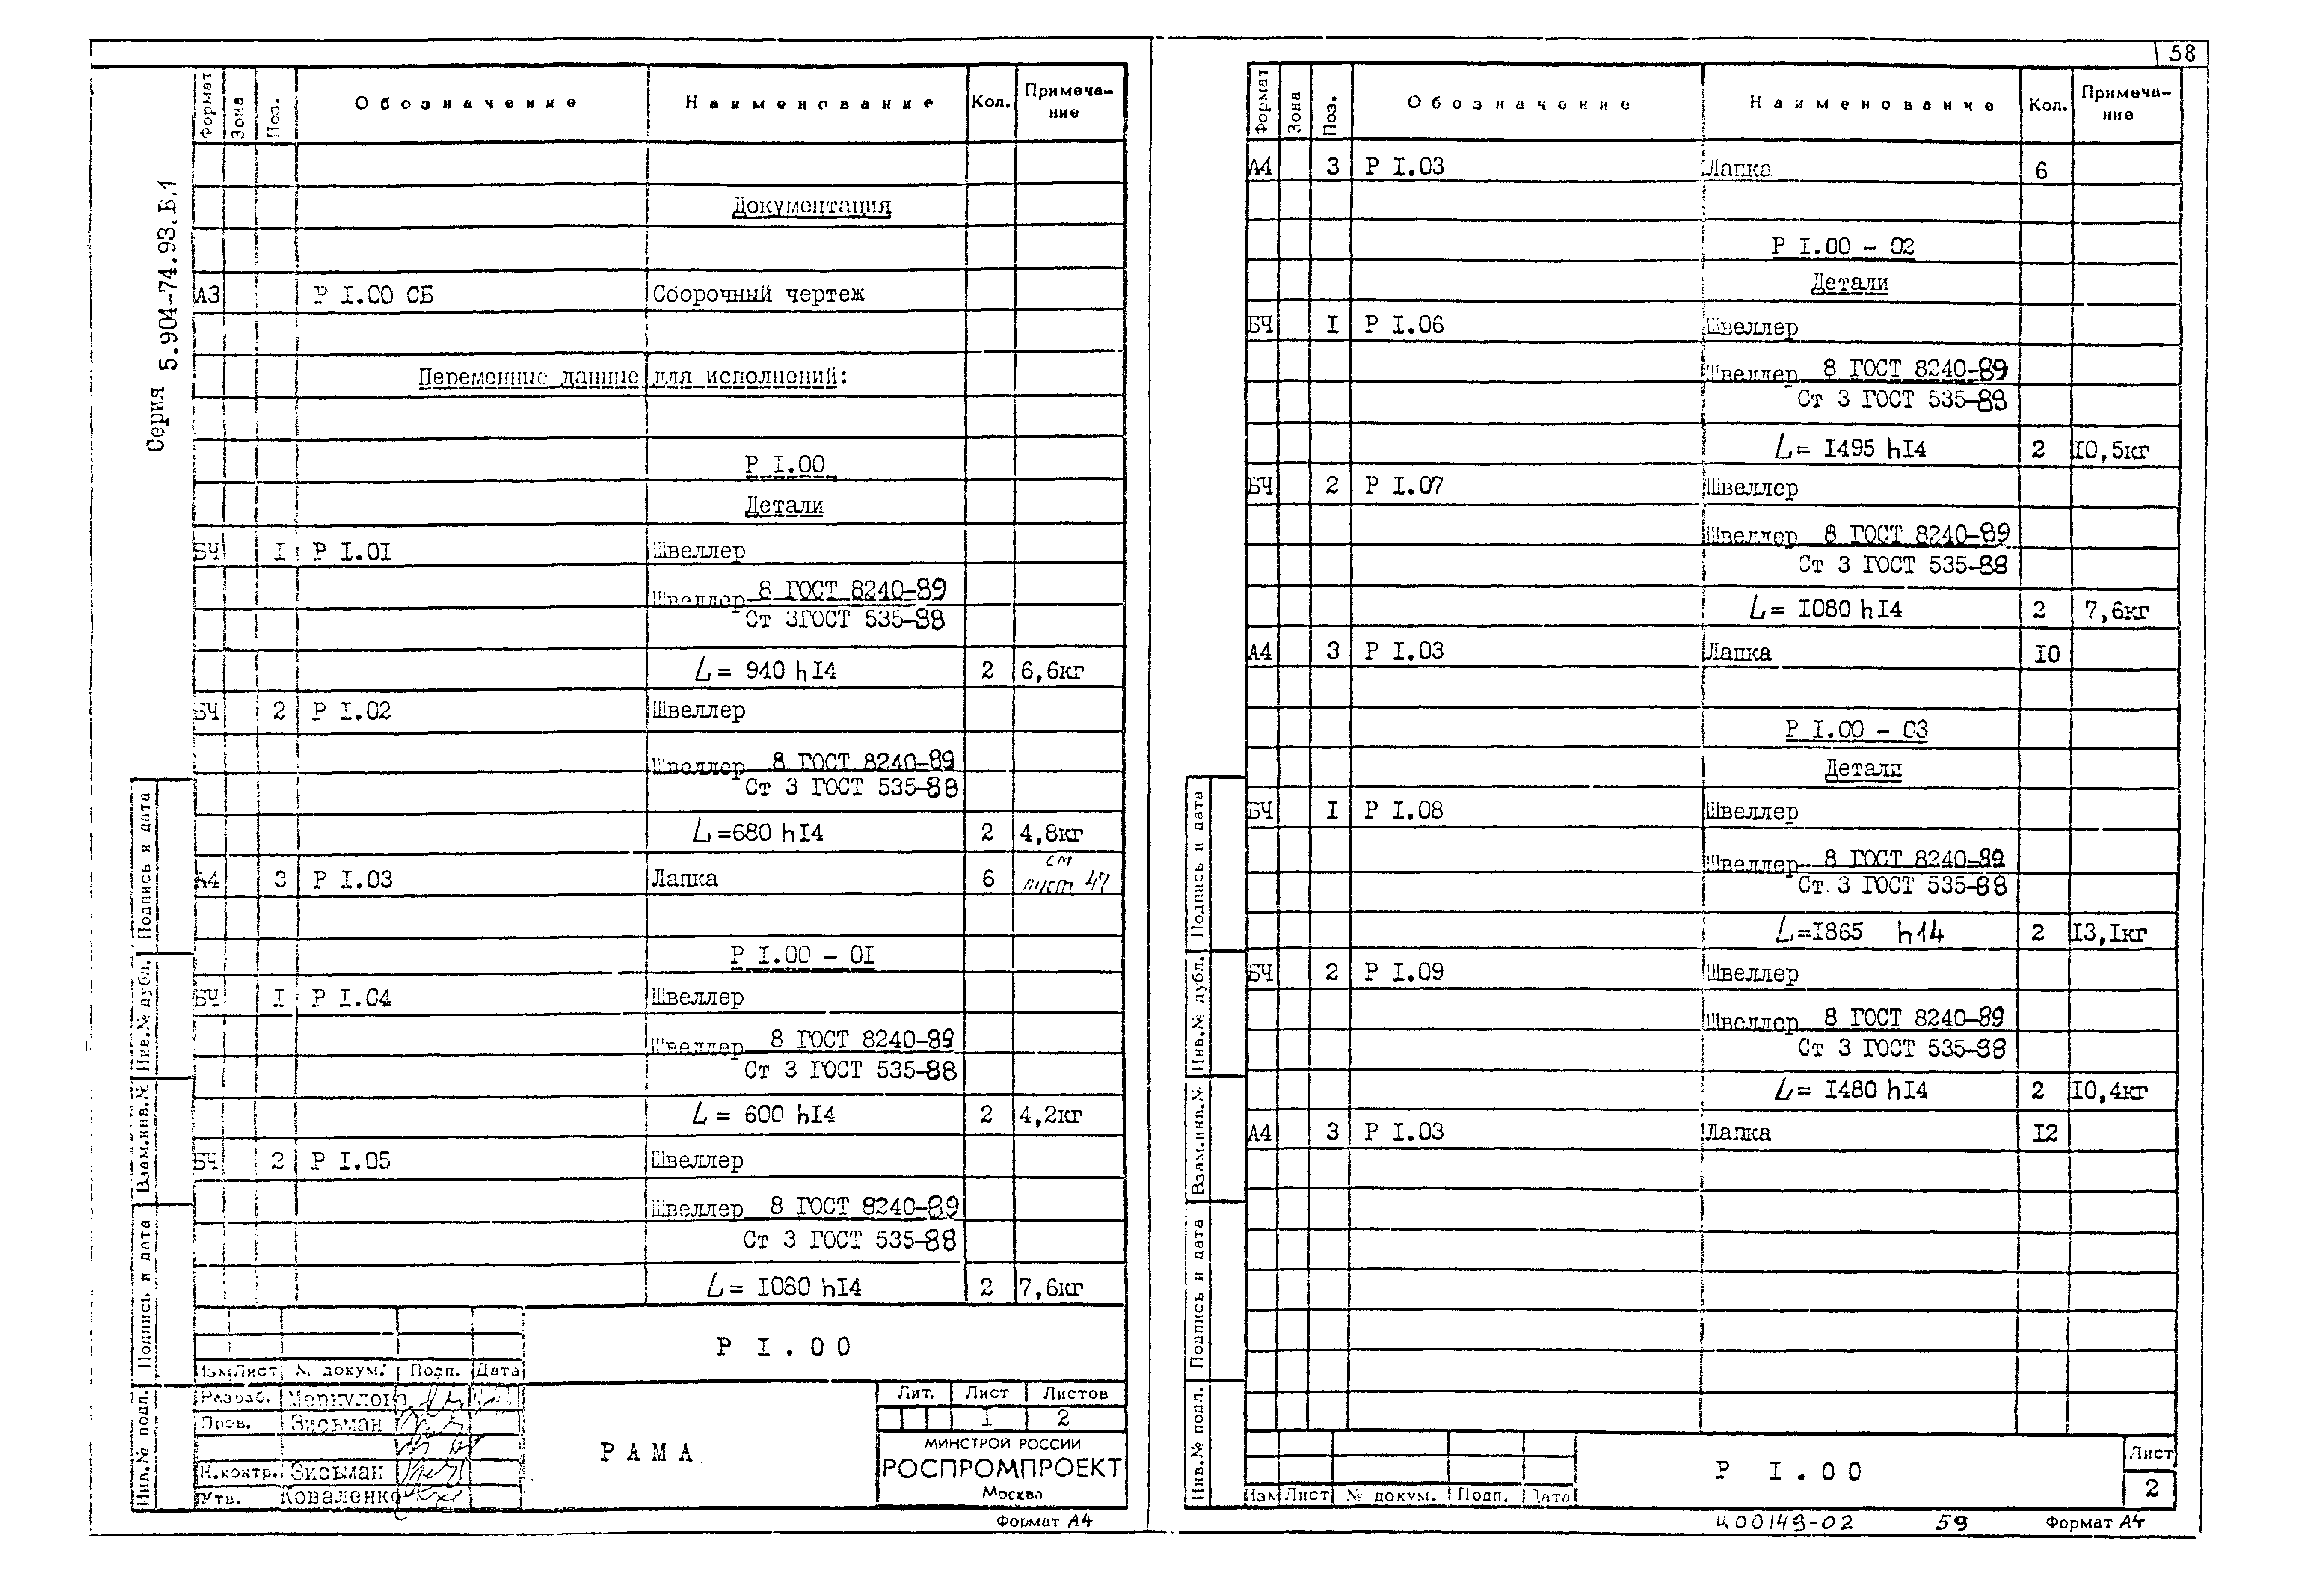 58
Серия 5.904-74.93.В.1
Формат Зона Поз. Обозначение Наименование Кол. Примеча-
ние
Документация
А3 Р I.00 СБ Сборочный чертеж
Переменные данные для исполнений:
Р I.00
Детали
БЧ I Р I.01 Швеллер
Швеллер 8 ГОСТ 8240-89
Ст 3ГОСТ 535-88
L= 940 h14 2 6,6кг
БЧ 2 Р I.02 Швеллер
Швеллер 8 ГОСТ 8240-89
Ст 3 ГОСТ 535-88
L=680 h14 2 4,8кг
см
А4 3 Р I.03 Лапка 6 лист 47
Р I.00 - 01
БЧ I Р I.04 Швеллер
Швеллер 8 ГОСТ 8240-89
Ст 3 ГОСТ 535-88
L= 600 h14 2 4,2кг
БЧ 2 Р I.05 Швеллер
Швеллер 8 ГОСТ 8240-89
Ст 3 ГОСТ 535-88
L= 1080 h14 2 7,6кг
Инв.№ подл. Подпись и дата Взам.инв.№ Инв.№ дубл. Подпись и дата
Р I.00
Изм Лист № докум. Подп. Дата
Разраб. Меркулова
Пров. Зисьман
Н.контр. Зисьман
Утв. Коваленко
РАМА
Лит. Лист Листов
I 2
МИНСТРОЙ РОССИИ
РОСПРОМПРОЕКТ
Москва
Формат А4
Формат Зона Поз. Обозначение Наименование Кол. Примеча-
ние
А4 3 Р I.03 Лапка 6
Р I.00 - 02
Детали
БЧ I Р I.06 Швеллер
Швеллер 8 ГОСТ 8240-89
Ст 3 ГОСТ 535-88
L= 1495 h14 2 10,5кг
БЧ 2 Р I.07 Швеллер
Швеллер 8 ГОСТ 8240-89
Ст 3 ГОСТ 535-88
L= 1080 h14 2 7,6кг
А4 3 Р I.03 Лапка 10
Р I.00 - 03
Детали
БЧ I Р I.08 Швеллер
Швеллер 8 ГОСТ 8240-89
Ст. 3 ГОСТ 535-88
L=1865 h14 2 13,1кг
БЧ 2 Р I.09 Швеллер
Швеллер 8 ГОСТ 8240-89
Ст 3 ГОСТ 535-88
L= 1480 h14 2 10,4кг
А4 3 Р I.03 Лапка 12
Инв.№ подл. Подпись и дата Взам.инв.№ Инв.№ дубл. Подпись и дата
Изм Лист № докум. Подп. Дата
Р I.00
Лист
2
Ц00149-02 59 Формат А4